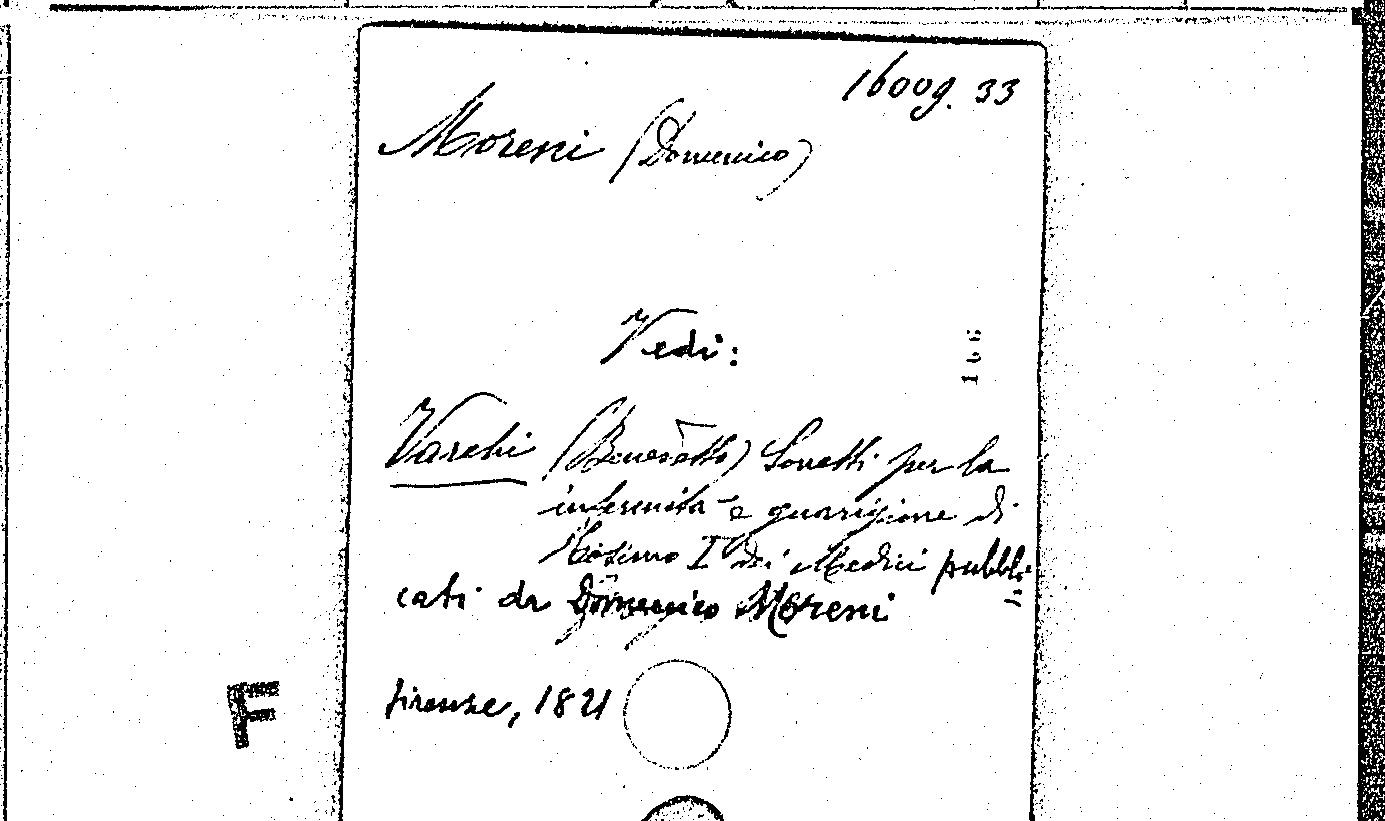 16009. 33
Moreni (Domenico)
Vedi:
166
Varchi (Benedetto) Sonetti per la
infermità e guarigione di
Cosimo I dei Medici pubbli=
cati da Domenico Moreni
Firenze, 1821
F